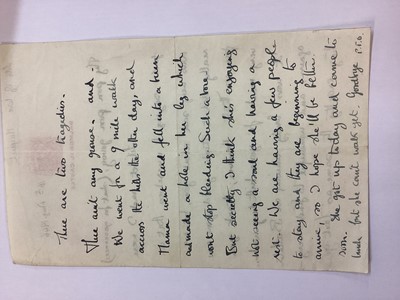 There are two tragedies.
There aint any grouse. - and -
We went for a 9 mile walk
across the hills the other day, and
Mama went and fell into a burn
and made a hole in her leg which
wont stop bleeding. Such a bore
But secretly I think she's enjoying
not seeing a soul and having a
rest. We are having a few people
to stay, and they are beginning to
arrive, so I hope she'll be better
soon. She got up today and came to
lunch, but she cant walk yet. Goodbye P.T.O.